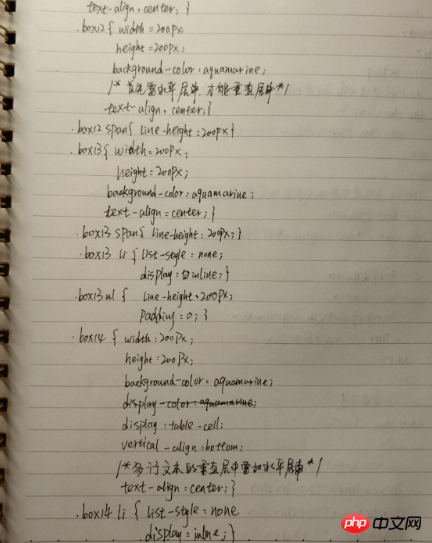 text-align: center; }
.box12 { width=200px;
height=200px;
background-color: aquamarine;
/* 首先需水平居中, 才能垂直居中 */
text-align: center; }
.box12 span { line-height: 200px }
.box13 { width=200px;
height: 200px;
background-color: aquamarine;
text-align: center; }
.box13 span { line-height: 200px; }
.box13 li { list-style: none;
display: inline; }
.box13 ul { line-height: 200px;
padding: 0; }
.box14 { width: 200px;
height: 200px;
background-color: aquamarine;
display-color: aquamarine;
display: table-cell;
vertical-align: bottom;
/* 多行文本的垂直居中需加水平居中 */
text-align: center; }
.box14 li { list-style: none
display: inline; }
php 中文网